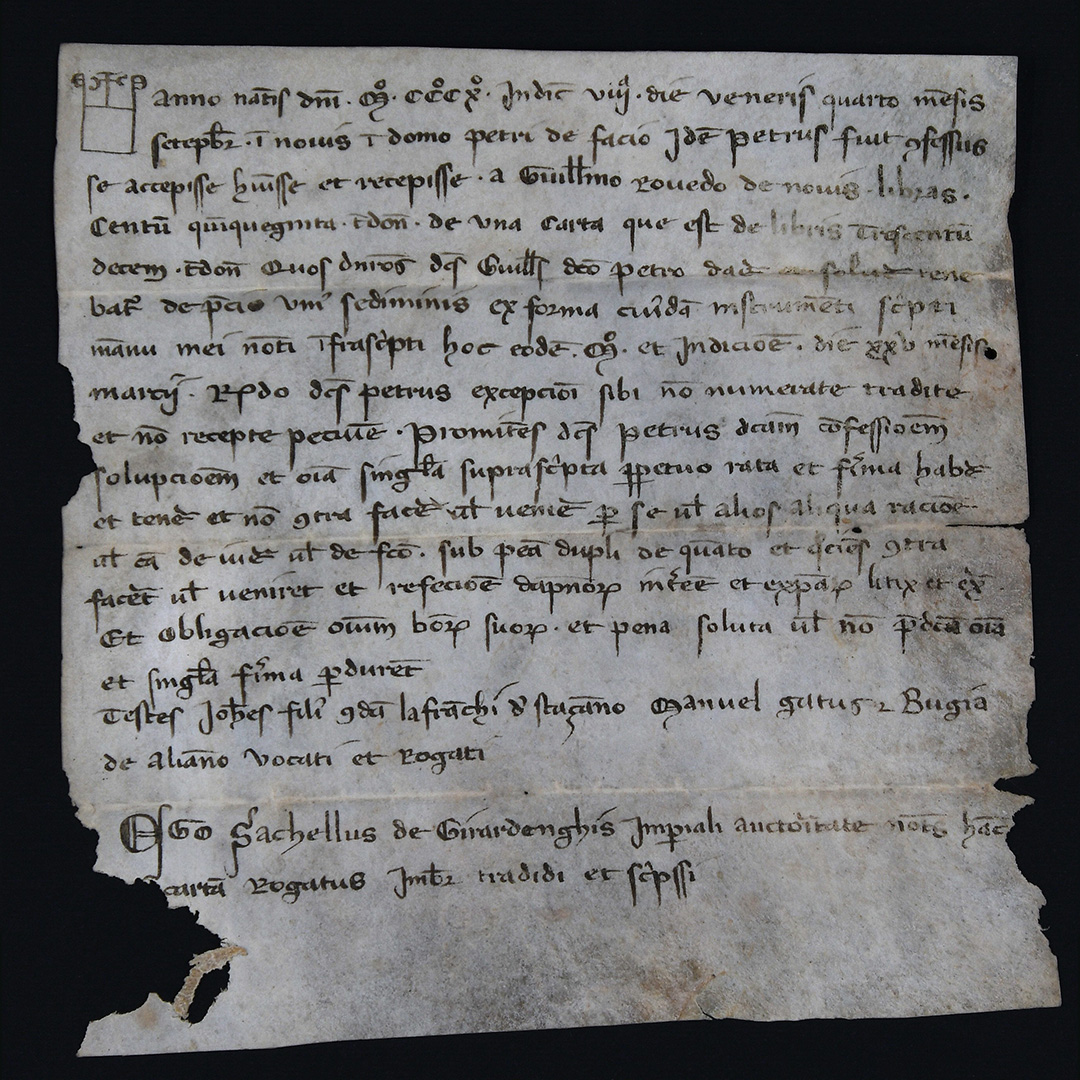 Anno natis dni . Mº . CCCºXº . Indic viiiª . die veneris quarto mēsis
setepbr . ī nouis ī domo petri de facio Jdē Petrus fuit ꝯfessus
se accepisse hiusse et recepisse . a Guillmo Rouedo de nouis . libras .
Centū quinqueginta . tdon . de vna Carta que est de libris Trescentū
decem . tdon Quos dnros dcs Guills dco petro dad solud tene
bat de pcio vni sediminis ex forma cuidā instrumēti scpti
manu mei noti īfrascpti hoc eodē . Mº . et Indicioē . diē xxv mēsis
marcij . Rṇdo dcs petrus excepcioi sibi nō numerate tradite
et nō recepte pecuiē . Promitēs dcs Petrus dcam ꝯfessioem
solupcioem et oia singla suprascpta ꝑpetuo rata et firma habe
et tene et nō ꝯtra face ul uenie ꝑ se ul alios aliqua racioe
ul cā de iure ul de fco . sub pea dupli de quato et ꝯtra
facet ul ueniret et refecioē dapnoꝝ et expaꝝ litix et
Et Obligacioē oium boꝝ suoꝝ . et pena soluta ul nō pdca oia
et singla firma ꝑduret
Testes Johes fili ꝯdā lafrachi d staçano Manuel gatus ⁊ Bugia
de aliano Vocati et Rogati
Ego Grachellus de Girardenghis Impiali auctoritate nots hac
cartā Rogatus Imbr tradidi et scpssi